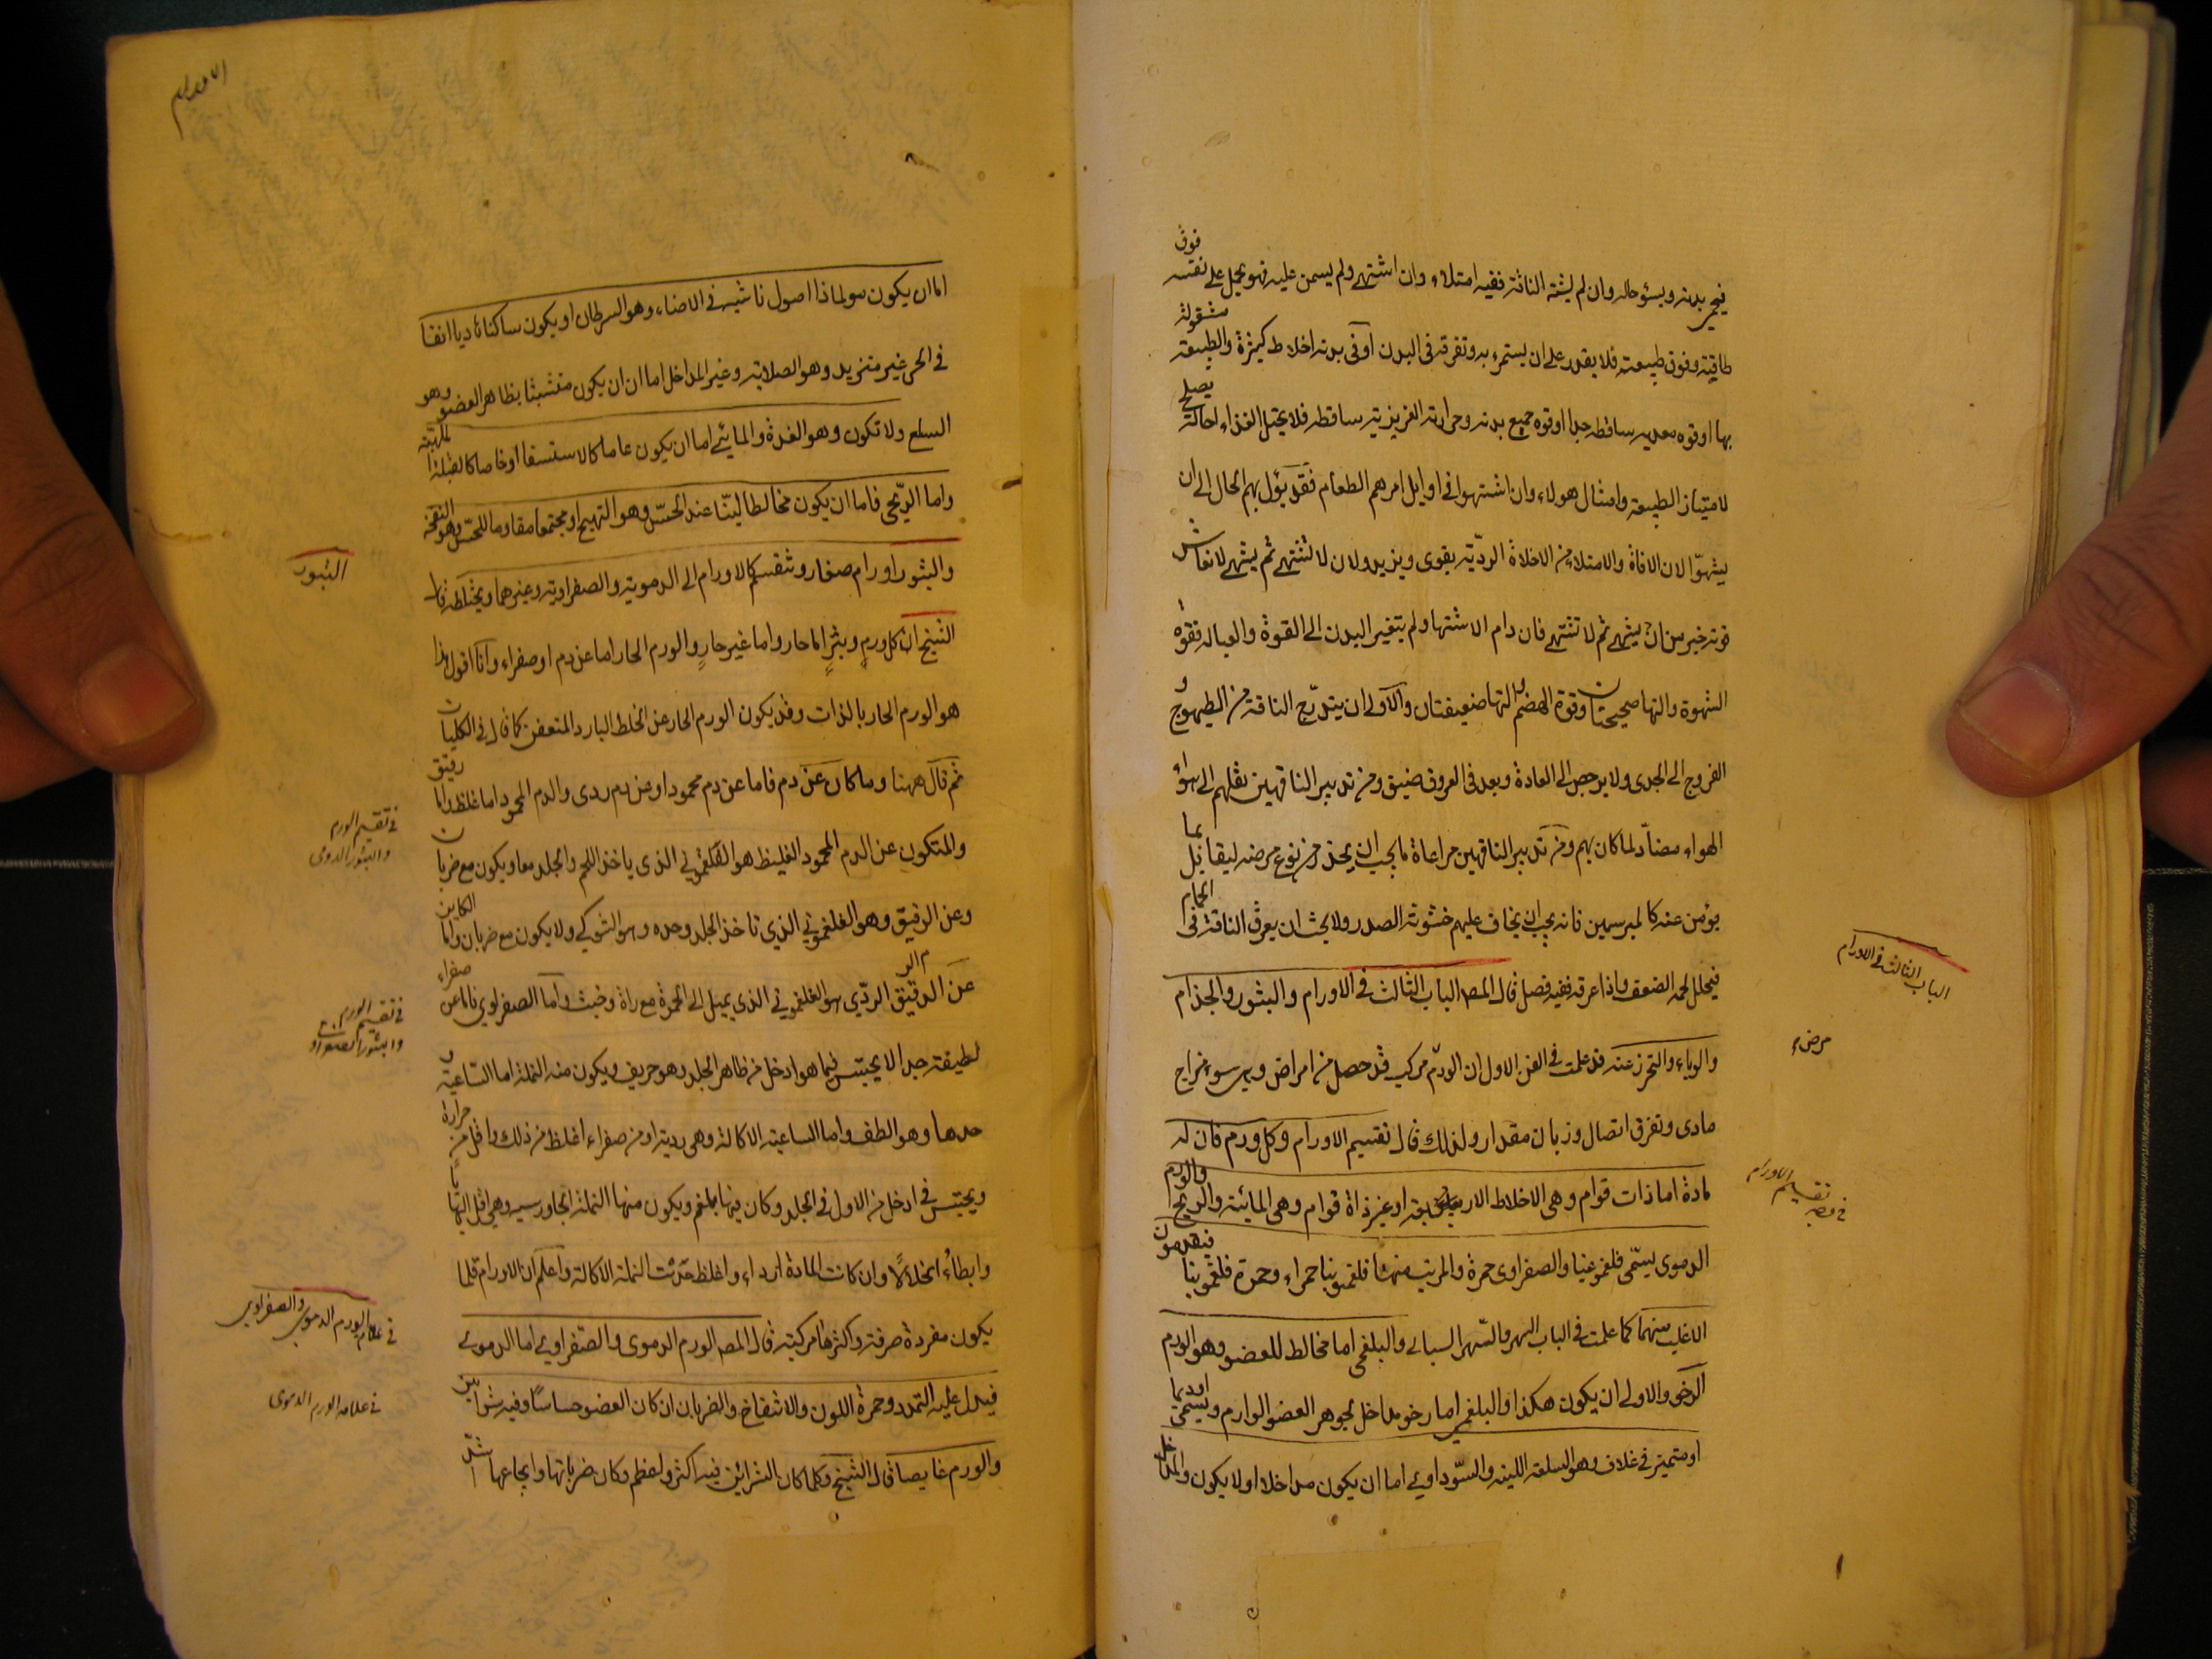 فيحر بدنه ويسؤ حاله وان لم يشته الناقه ففيه امتلاء وان اشتهى ولم يسمن عليه فهو يحمل على نفسه فوق
طاقته وفوق طبيعته فلا يقدر على ان يستمرء به وتفرقه فى البدن او فى بدنه اخلاط كثيرة والطبيعة مشغولة
بها او قوه معدته ساقطه جدا او قوه جميع بدنه وحرارته الغريزية ساقطه فلا يحيل الغذاء احالة يصلح
لامتياز الطبيعة وامثال هولاء وان اشتهوا فى اوايل امرهم الطعام فقد يؤل بهم الحال الى ان
لا يشتهوا لان الافاة والامتلاء من الاخلاط الردية يقوى ويزيد ولان لا تشتهى ثم يشتهى لانتعاش
قوته خير من ان يشتهى ثم لا تشتهى فان دام الاشتها ولم يتغير البدن الى القوة والعبالة فقوه
الشهوة والتها صحيحتان وقوة الهضم والتها ضعيفتان والاولى ان يتدرج الناقه من الطيهوج و
الفروج الى الجدى ولا يرجع الى العادة وبعد فى العروق ضيق ومن تدبير الناقهين نقلهم الى هواء
الهواء مضاد لما كان بهم ومن تدبير الناقهين مراعاة ما يجب ان يحذر من نوع مرضه ليقابل بما
يؤمن عنه كالمبرسمين فانه يجب ان يخاف عليهم خشونة الصدر ولا يجب ان يعرق الناقه فى الحمام
فيتحلل لحمه الضعيف واذا عرقه ففيه فضل قال المص الباب الثالث فى الاورام والبثور والجذام
والوباء والتحرز عنه قد علمت فى الفن الاول ان الورم مركب قد حصل من امراض وهى سوء مزاج
مادى وتفرق اتصال وزيان مقدار ولذلك قال تقسيم الاورام وكل ورم فان له
مادة اما ذات قوام وهى الاخلاط الاربعة او غير ذاة قوام وهى المائية والريح والورم
الدموى يسمى فلغمونيا والصفراوى حمرة والمركب منهما فلغمونيا حمراء وحمرة فلغمونيا فيقدمون
الاغلب منهما كما علمت فى الباب السهر والسهر السباتى والبلغمى اما مخالط للعضو وهو الورم
الرخو والاولى ان يكون هكذا والبلغمى اما رخو مداخل لجوهر العضو الوارم ويسمى اوديما
او متميز فى غلاف وهو السلعة اللينة والسوداوى اما ان يكون مداخلا او لا يكون والمداخل
الباب الثالث فى الاورام
مرض
فى وجه تقسيم الاورام
الاورام
اما ان يكون مولما ذا اصول ناشبة فى الاعضاء وهو السرطان او يكون ساكنا هاديا انقا
فى الحس غير متزيد وهو الصلابة وغير المداخل اما ان يكون متشبثا بظاهر العضو وهو
السلع ولا تكون وهو الغدة والمائى اما ان يكون عاما كالاستسقا او خاصا كالقيلة
واما الريحى فاما ان يكون مخالطا لينا عند الحس وهو التهيج او مجتمعا مقاوما للحس وهو النفخة
والبثور اورام صغار وتنقسم كالاورام الى الدموية والصفراوية وغيرهما ويختلطه قال
الشيخ ان كل ورم وبثر اما حار واما غير حار والورم الحار اما عن دم او صفراء وانا اقول هذا
هو الورم الحار بالذات وقد يكون الورم الحار عن الخلط البارد المتعفن كما قال فى الكليات
ثم قال ههنا وما كان عن دم فاما عن دم محمود او عن دم ردى والدم المحمود اما غليظ واما رقيق
والمتكون عن الدم المحمود الغليظ هو الفلغمونى الذى ياخذ اللحم والجلد معا ويكون مع ضربان
وعن الرقيق وهو الفلغمونى الذى تاخذ الجلد وحده وهو الشوكى ولا يكون مع ضربان واما الكاين
عن الدم الرقيق الردى هو الفلغمونى الذى يميل الى الحمرة مع رداءة وخبث واما الصفراوى فاما عن صفراء
لطيفة جدا لا يحتبس فيما هو ادخل من ظاهر الجلد وهو حريف ويكون منه النملة اما الساعية و
حدها وهو الطف واما الساعية الاكالة وهى ردية او من صفراء اغلظ من ذلك واقل حرارة من
ويحتبس فى ادخل من الاول فى الجلد وكان فيها بلغم ويكون منها النملة الجاورسية وهى اقل التهابا
وابطاء انحلالا وان كانت المادة ارداء واغلظ حدثت النملة الاكالة واعلم ان الاورام قلما
يكون مفردة صرفة واكثرها مركبة قال المص الورم الدموى والصفراوى اما الدموى
فيدل عليه التمدد وحمرة اللون والانتفاخ والضربان ان كان العضو حساسا وفيه شرايين
والورم غايصا قال الشيخ وكلما كان الشرائين فيه اكثر واعظم وكان ضرباتها وايجاعها اشد
البثور
فى تقسيم الورم
والبثور الدموى
فى تقسيم الورم
والبثور الصفراوى
فى علامة الورم الدموى والصفراوى
فى علامة الورم الدموى